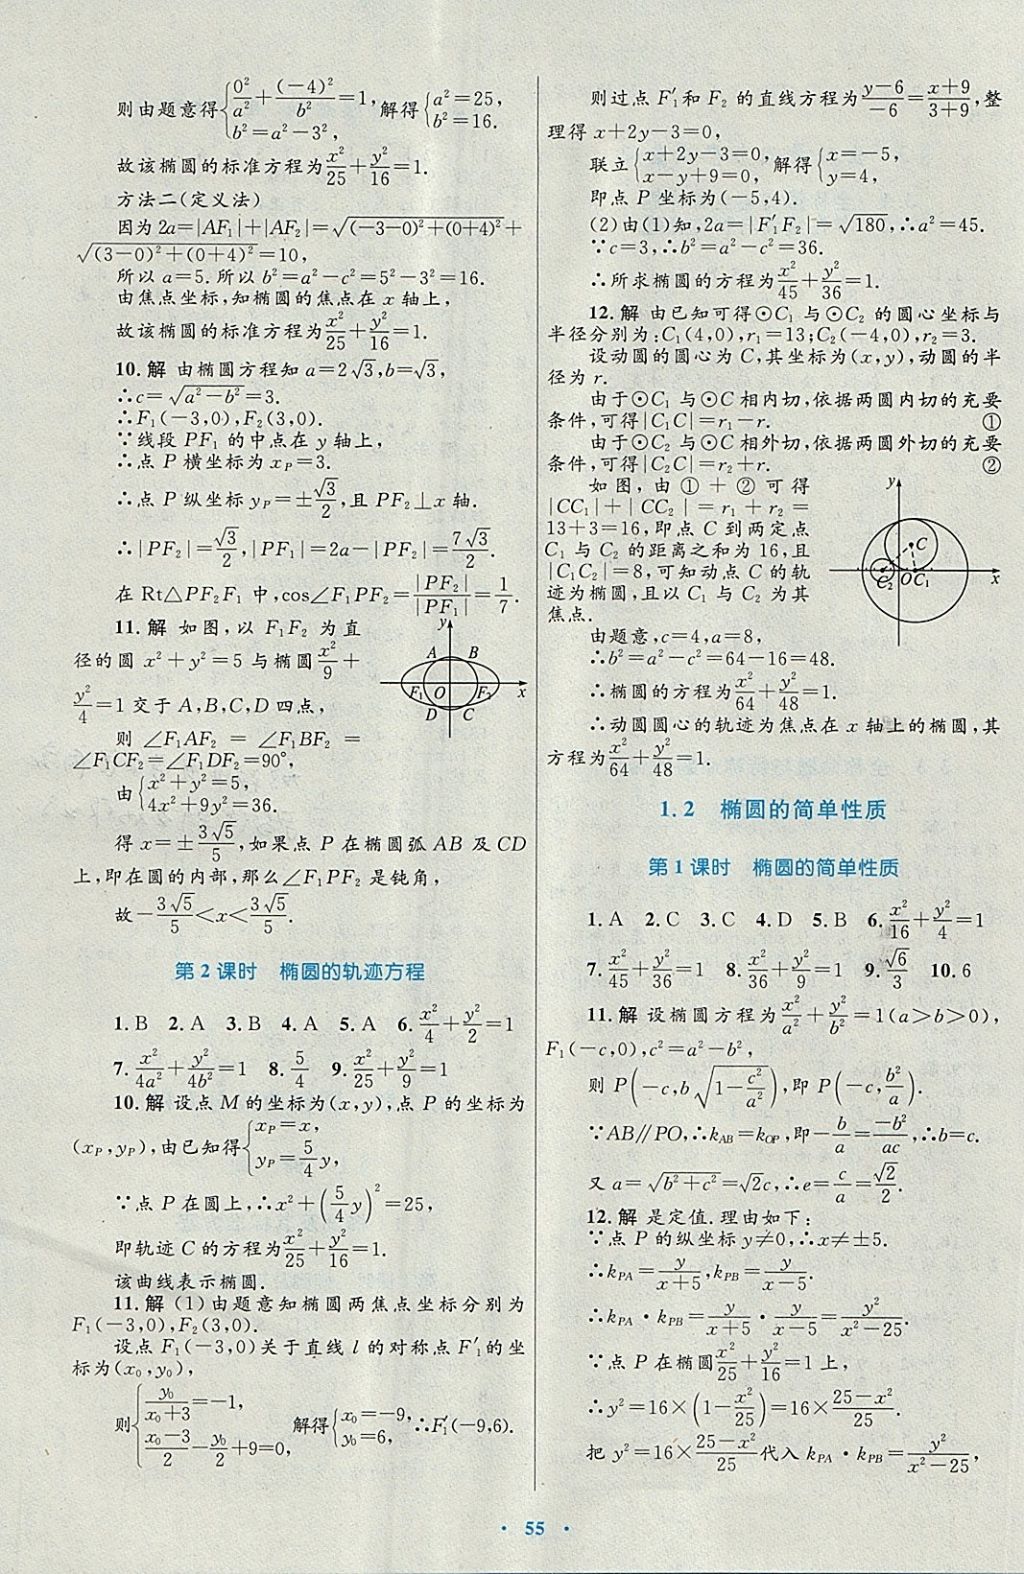 则由题意得{0²/a²+(-4)²/b²=1, b²=a²-3², 解得{a²=25, b²=16.
故该椭圆的标准方程为x²/25+y²/16=1.
方法二(定义法)
因为2a=|AF₁|+|AF₂|=√((-3-0)²+(0+4)²)+
√((3-0)²+(0+4)²)=10,
所以a=5.所以b²=a²-c²=5²-3²=16.
由焦点坐标,知椭圆的焦点在x轴上,
故该椭圆的标准方程为x²/25+y²/16=1.
10.解 由椭圆方程知a=2√3,b=√3,
∴c=√(a²-b²)=3.
∴F₁(-3,0),F₂(3,0).
∵线段PF₁的中点在y轴上,
∴点P横坐标为x_P=3.
∴点P纵坐标y_P=±√3/2,且PF₂⊥x轴.
∴|PF₂|=√3/2,|PF₁|=2a-|PF₂|=7√3/2.
在Rt△PF₂F₁中,cos∠F₁PF₂=|PF₂|/|PF₁|=1/7.
11.解 如图,以F₁F₂为直
径的圆x²+y²=5与椭圆x²/9+
y²/4=1交于A,B,C,D四点,
y A B F₁ O F₂ x D C
则∠F₁AF₂=∠F₁BF₂=
∠F₁CF₂=∠F₁DF₂=90°,
由{x²+y²=5, 4x²+9y²=36.
得x=±3√5/5,如果点P在椭圆弧AB及CD
上,即在圆的内部,那么∠F₁PF₂是钝角,
故-3√5/5<x<3√5/5.
第2课时 椭圆的轨迹方程
1.B 2.A 3.B 4.A 5.A 6.x²/4+y²/2=1
7.x²/4a²+y²/4b²=1 8.5/4 9.x²/25+y²/9=1
10.解 设点M的坐标为(x,y),点P的坐标为
(x_P,y_P),由已知得{x_P=x, y_P=5/4y,
∵点P在圆上,∴x²+(5/4y)²=25,
即轨迹C的方程为x²/25+y²/16=1.
该曲线表示椭圆.
11.解 (1)由题意知椭圆两焦点坐标分别为
F₁(-3,0),F₂(3,0).
设点F₁(-3,0)关于直线l的对称点F′₁的坐
标为(x₀,y₀),
则{y₀/(x₀+3)=-1, (x₀-3)/2-y₀/2+9=0, 解得{x₀=-9, y₀=6, ∴F′₁(-9,6).
则过点F′₁和F₂的直线方程为(y-6)/(-6)=(x+9)/(3+9),整
理得x+2y-3=0,
联立{x+2y-3=0, x-y+9=0, 解得{x=-5, y=4,
即点P坐标为(-5,4).
(2)由(1)知,2a=|F′₁F₂|=√180,∴a²=45.
∵c=3,∴b²=a²-c²=36.
∴所求椭圆的方程为x²/45+y²/36=1.
12.解 由已知可得⊙C₁与⊙C₂的圆心坐标与
半径分别为:C₁(4,0),r₁=13;C₂(-4,0),r₂=3.
设动圆的圆心为C,其坐标为(x,y),动圆的半
径为r.
由于⊙C₁与⊙C相内切,依据两圆内切的充要
条件,可得|C₁C|=r₁-r. ①
由于⊙C₂与⊙C相外切,依据两圆外切的充要
条件,可得|C₂C|=r₂+r. ②
如图,由①+②可得
|CC₁|+|CC₂|=r₁+r₂=
13+3=16,即点C到两定点
C₁与C₂的距离之和为16,且
|C₁C₂|=8,可知动点C的轨
迹为椭圆,且以C₁与C₂为其
焦点.
y C C₂ O C₁ x
由题意,c=4,a=8,
∴b²=a²-c²=64-16=48.
∴椭圆的方程为x²/64+y²/48=1.
∴动圆圆心的轨迹为焦点在x轴上的椭圆,其
方程为x²/64+y²/48=1.
1.2 椭圆的简单性质
第1课时 椭圆的简单性质
1.A 2.C 3.C 4.D 5.B 6.x²/16+y²/4=1
7.x²/45+y²/36=1 8.x²/36+y²/9=1 9.√6/3 10.6
11.解 设椭圆方程为x²/a²+y²/b²=1(a>b>0),
F₁(-c,0),c²=a²-b²,
则P(-c,b√(1-c²/a²)),即P(-c,b²/a).
∵AB∥PO,∴k_AB=k_OP,即-b/a=-b²/ac,∴b=c.
又a=√(b²+c²)=√2c,∴e=c/a=√2/2.
12.解 是定值.理由如下:
∵点P的纵坐标y≠0,∴x≠±5.
∴k_PA=y/(x+5),k_PB=y/(x-5).
∴k_PA·k_PB=y/(x+5)·y/(x-5)=y²/(x²-25).
∵点P在椭圆x²/25+y²/16=1上,
∴y²=16×(1-x²/25)=16×(25-x²)/25.
把y²=16×(25-x²)/25代入k_PA·k_PB=y²/(x²-25),
· 55 ·